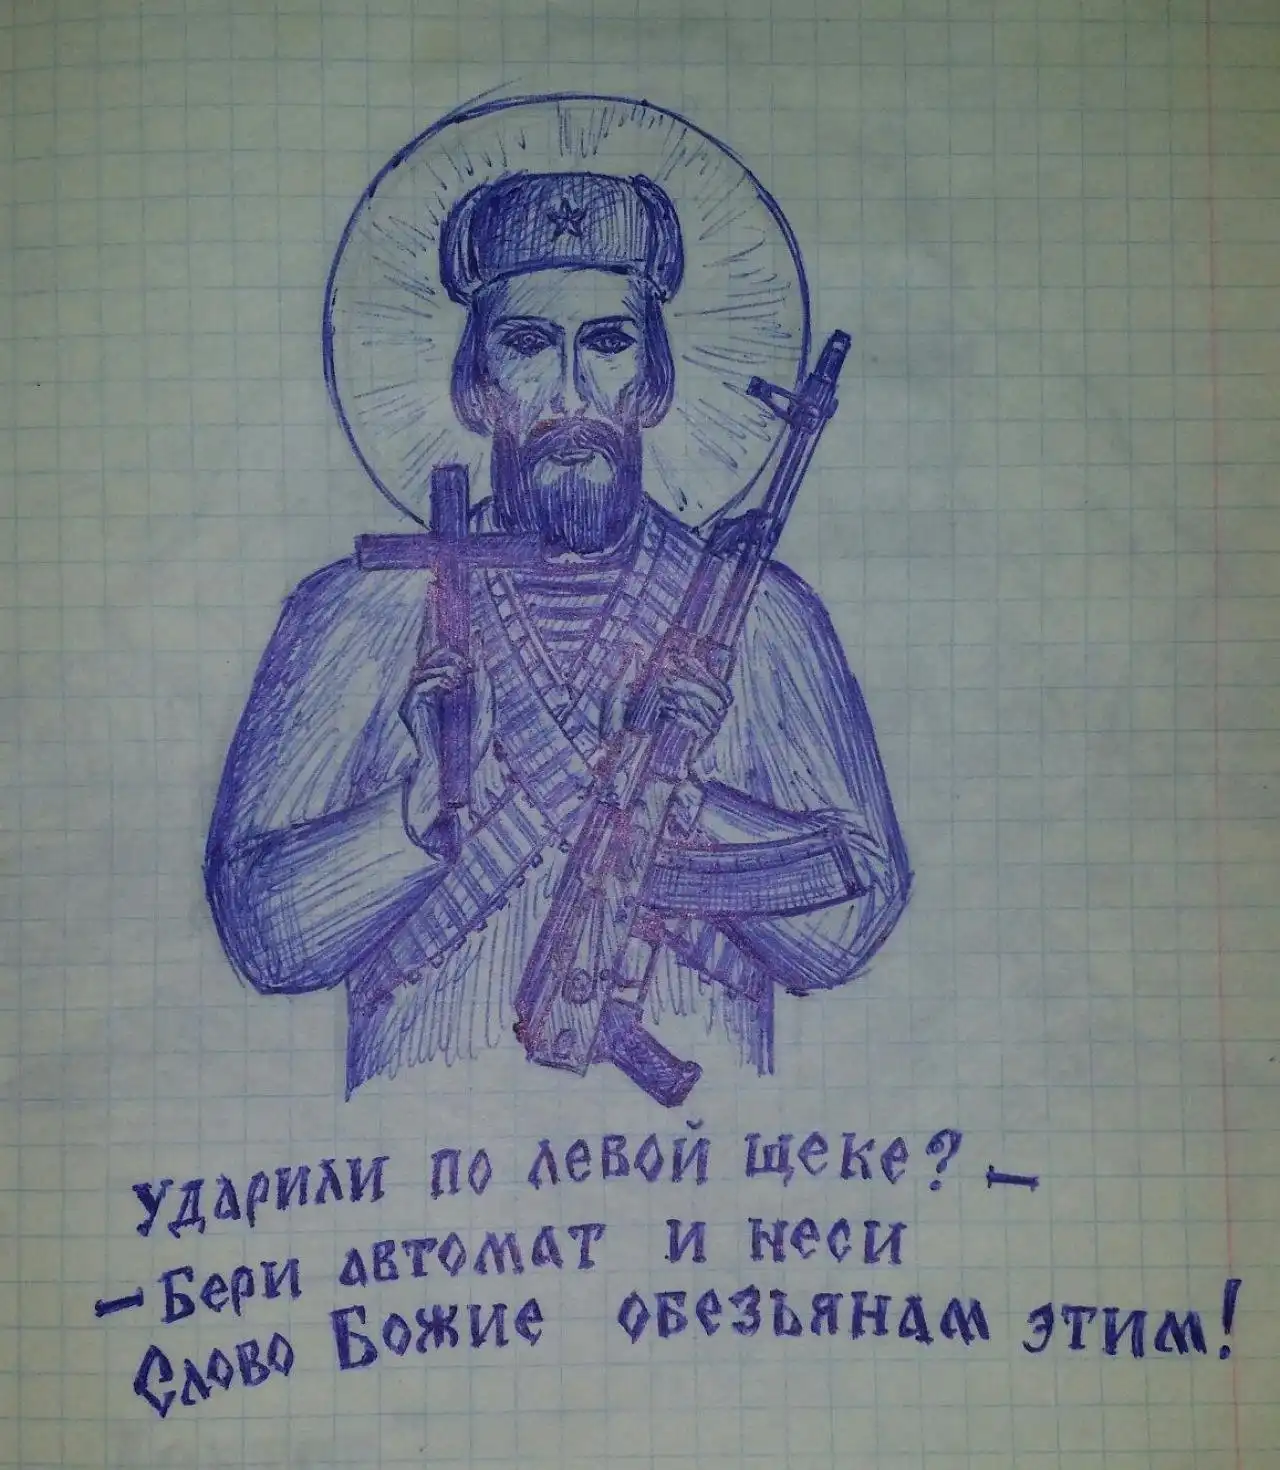 Ударили по левой щеке? –
– Бери автомат и неси
Слово Божие обезьянам этим!